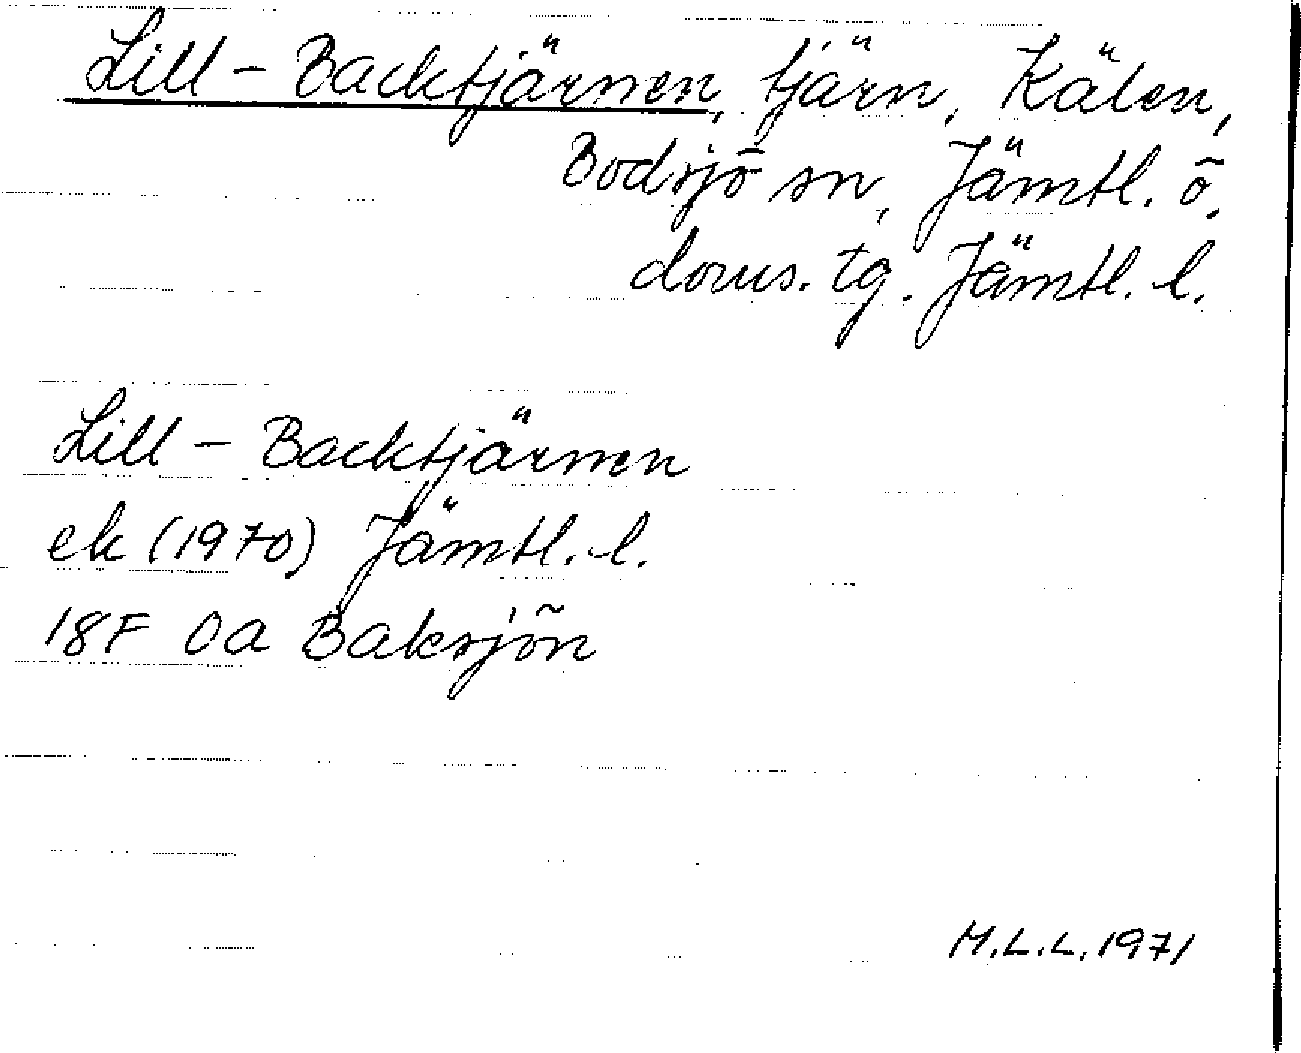 Lill-Backtjärnen, tjärn, Kälen,
Bodsjö sn, Jämtl. ö.
doms. tg. Jämtl. l.
Lill-Backtjärnen
ek (1970) Jämtl. l.
18F 0a Baksjön
M.L.L. 1971